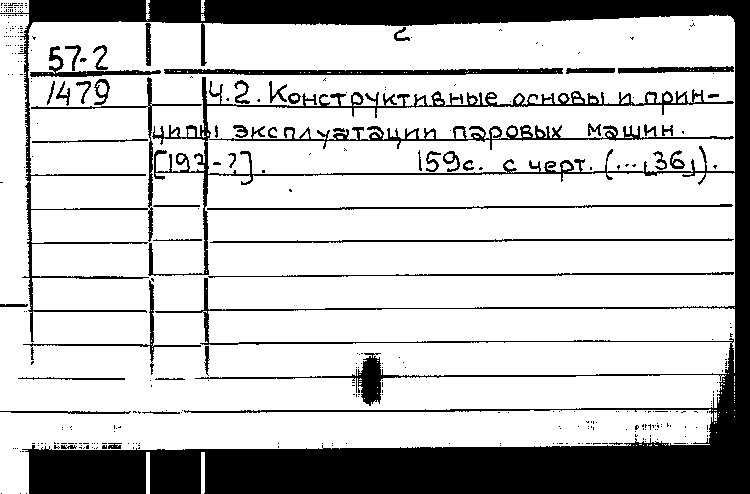 2
57-2
1479 Ч.2. Конструктивные основы и прин-
ципы эксплуатации паровых машин.
[193-?]. 159с. с черт. (...[36]).